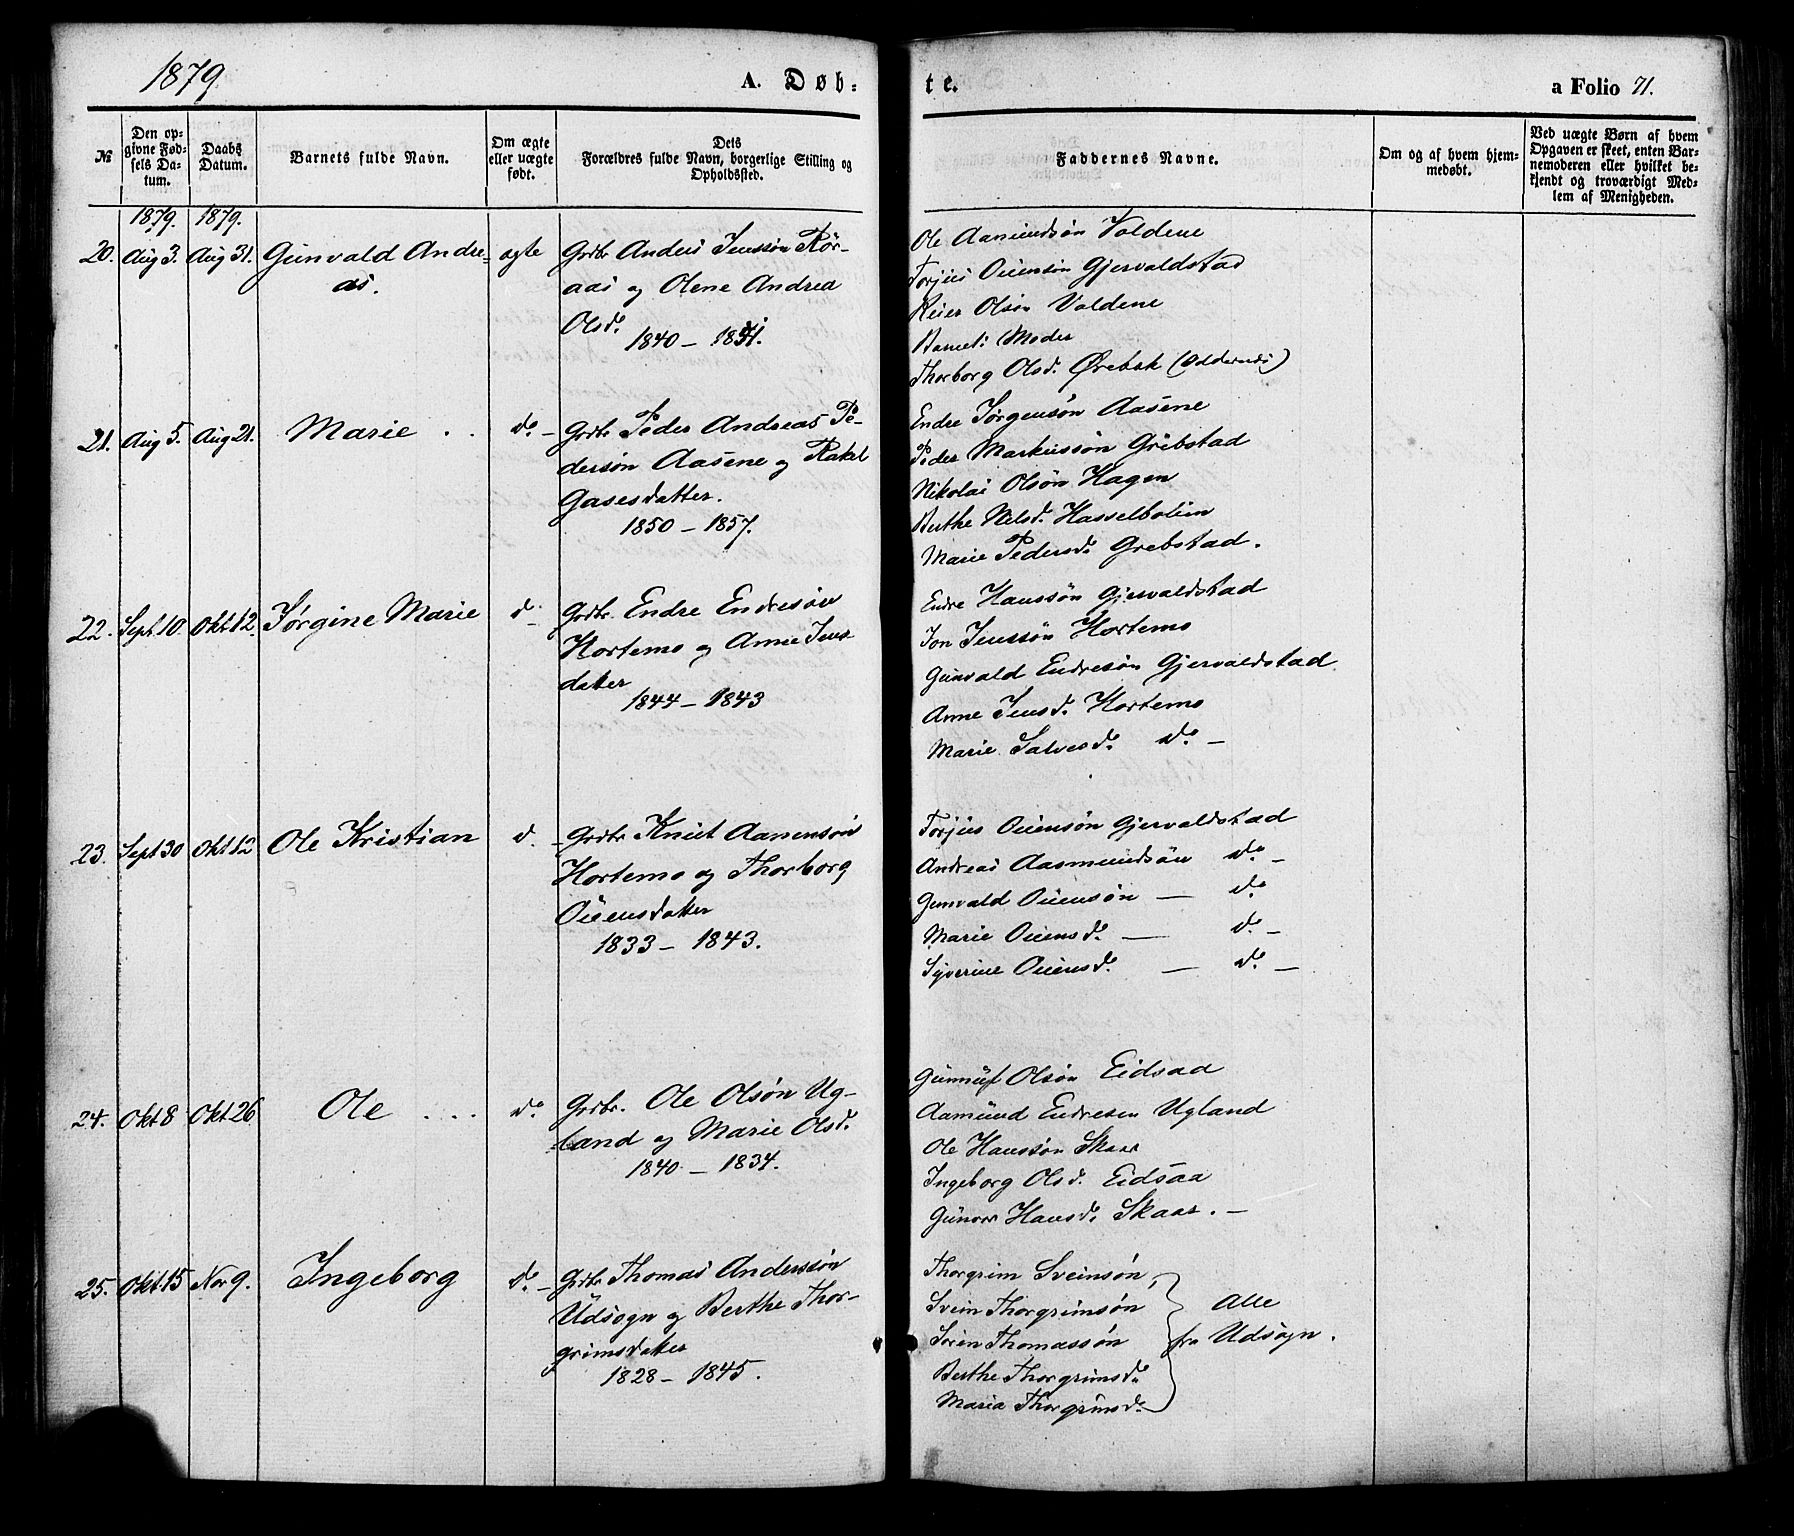 1879.
A. Døb-
te.
a Folio 71.
№
Den op-
givne Fød-
sels Da-
tum.
Daabs
Datum.
Barnets fulde Navn.
Om ægte
eller uægte
født.
Dets
Forældres fulde Navn, borgerlige Stilling og
Opholdssted.
Faddernes Navne.
Om og af hvem hjem-
medøbt.
Ved uægte Børn af hvem
Opgaven er skeet, enten Bar-
nemoderen eller hvilket be-
kjendt og troværdigt Med-
lem af Menigheden.
1879. 1879.
20. Aug 3. Aug 31. Gunvald Andre-
as.
ægte
Grdbr Anders Jenssøn Rör-
aas og Olene Andrea
Olsd.
1840 - 1851.
Ole Aamundsön Voldene
Torjus Ouensön Gjervaldstad
Reier Olsön Voldene
Barnets Moder
Thorborg Olsd. Ørebæk
21. Aug 5. Aug 21. Marie . . do -
Grdbr Peder Andreas Pe-
dersøn Aasene og Rakel
Gasesdatter.
1850 - 1857.
Endre Jørgensøn Aasene
Peder Markussön Grebstad
Nikolai Olsøn Hagen
Berthe Nilsd. Hasselbolun
Marie Pedersd. Grebstad.
22. Sept. 10. Okt 12. Jørgine Marie do
Grdbr. Endre Endresøn
Hortemo og Anne Jens
datter
1844 - 1843
Endre Hanssön Gjervaldstad
Jon Jenssön Hortemo
Gunvald Endresön Gjervaldstad.
Anne Jensd. Hortemo
Marie Salvesd. do -
23. Sept 30 Okt 12 Ole Kristian d.
Grdbr Knut Aanensøn
Hortemo og Thorborg
Ouensdatter
1833 - 1843.
Torjus Ouensøn Gjervaldstad
Andreas Aasmundsön do -
Gunvald Ouensön — do
Marie Ouensd. — do -
Syverine Ouensd. — do -
24. Okt 8 Okt 26 Ole . . . do.
Grdbr. Ole Olsøn Ug-
land og Marie Olsd.
1840 - 1834.
Gunnuf Olsön Eidsaa
Aamund Endresen Ugland
Ole Hanssøn Skaar
Ingeborg Olsd. Eidsaa
Gunvor Hansd. Skaar. -
25. Okt. 15 Nov 9. Ingeborg do -
Grdbr Thomas Anderssøn
Udsogn og Berthe Thor-
grimsdatter
1828 - 1845.
Thorgrim Sveinsøn,
Svein Thorgrimsøn
Sven Thomassøn
Berthe Thorgrimsd.
Maria Thorgrimsd.
Alle
fra Udsogn.